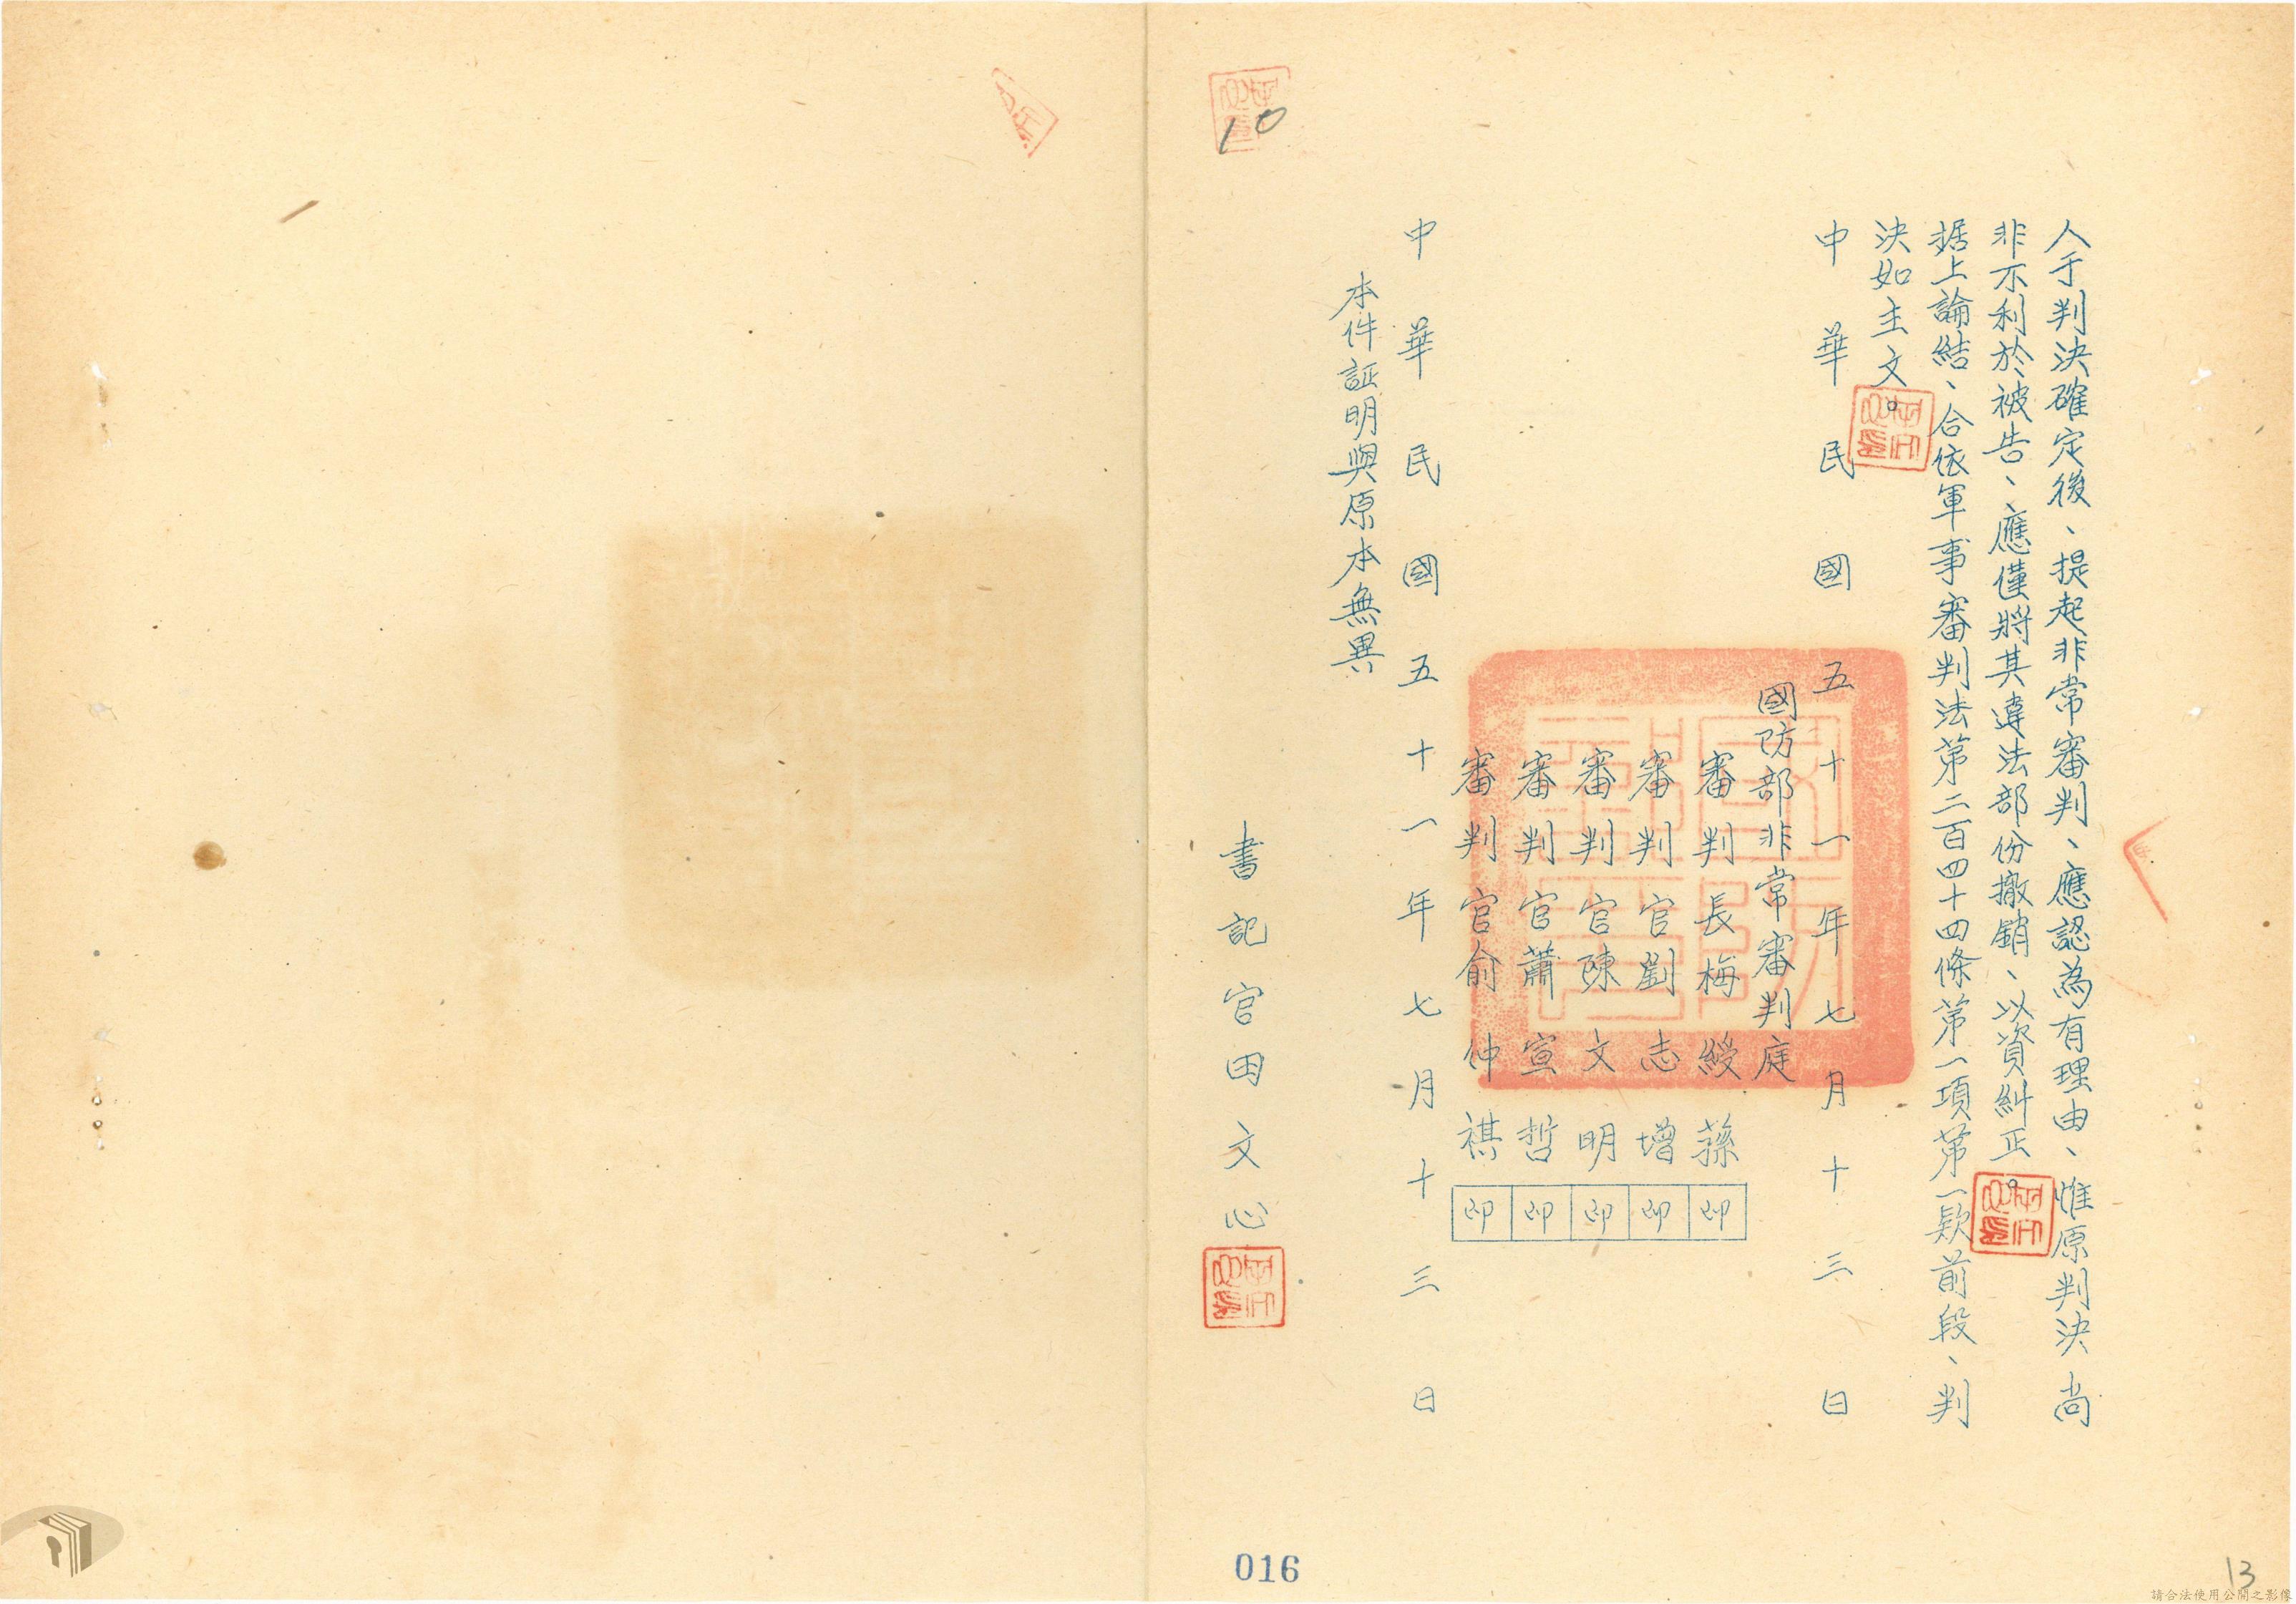 人于判決確定後、提起非常審判、應認為有理由、惟原判決尚
非不利於被告、應僅將其違法部份撤銷、以資糾正。
据上論結、合依軍事審判法第二百四十四條第一項第一款前段、判
決如主文。
中華民國五十一年七月十三日
國防部非常審判庭
審判長梅綬蓀印
審判官劉志增印
審判官陳文明印
審判官蕭宣哲印
審判官俞仲祺印
中華民國五十一年七月十三日
本件証明與原本無異
書記官田文心
10
016
13
請合法使用公開之影像